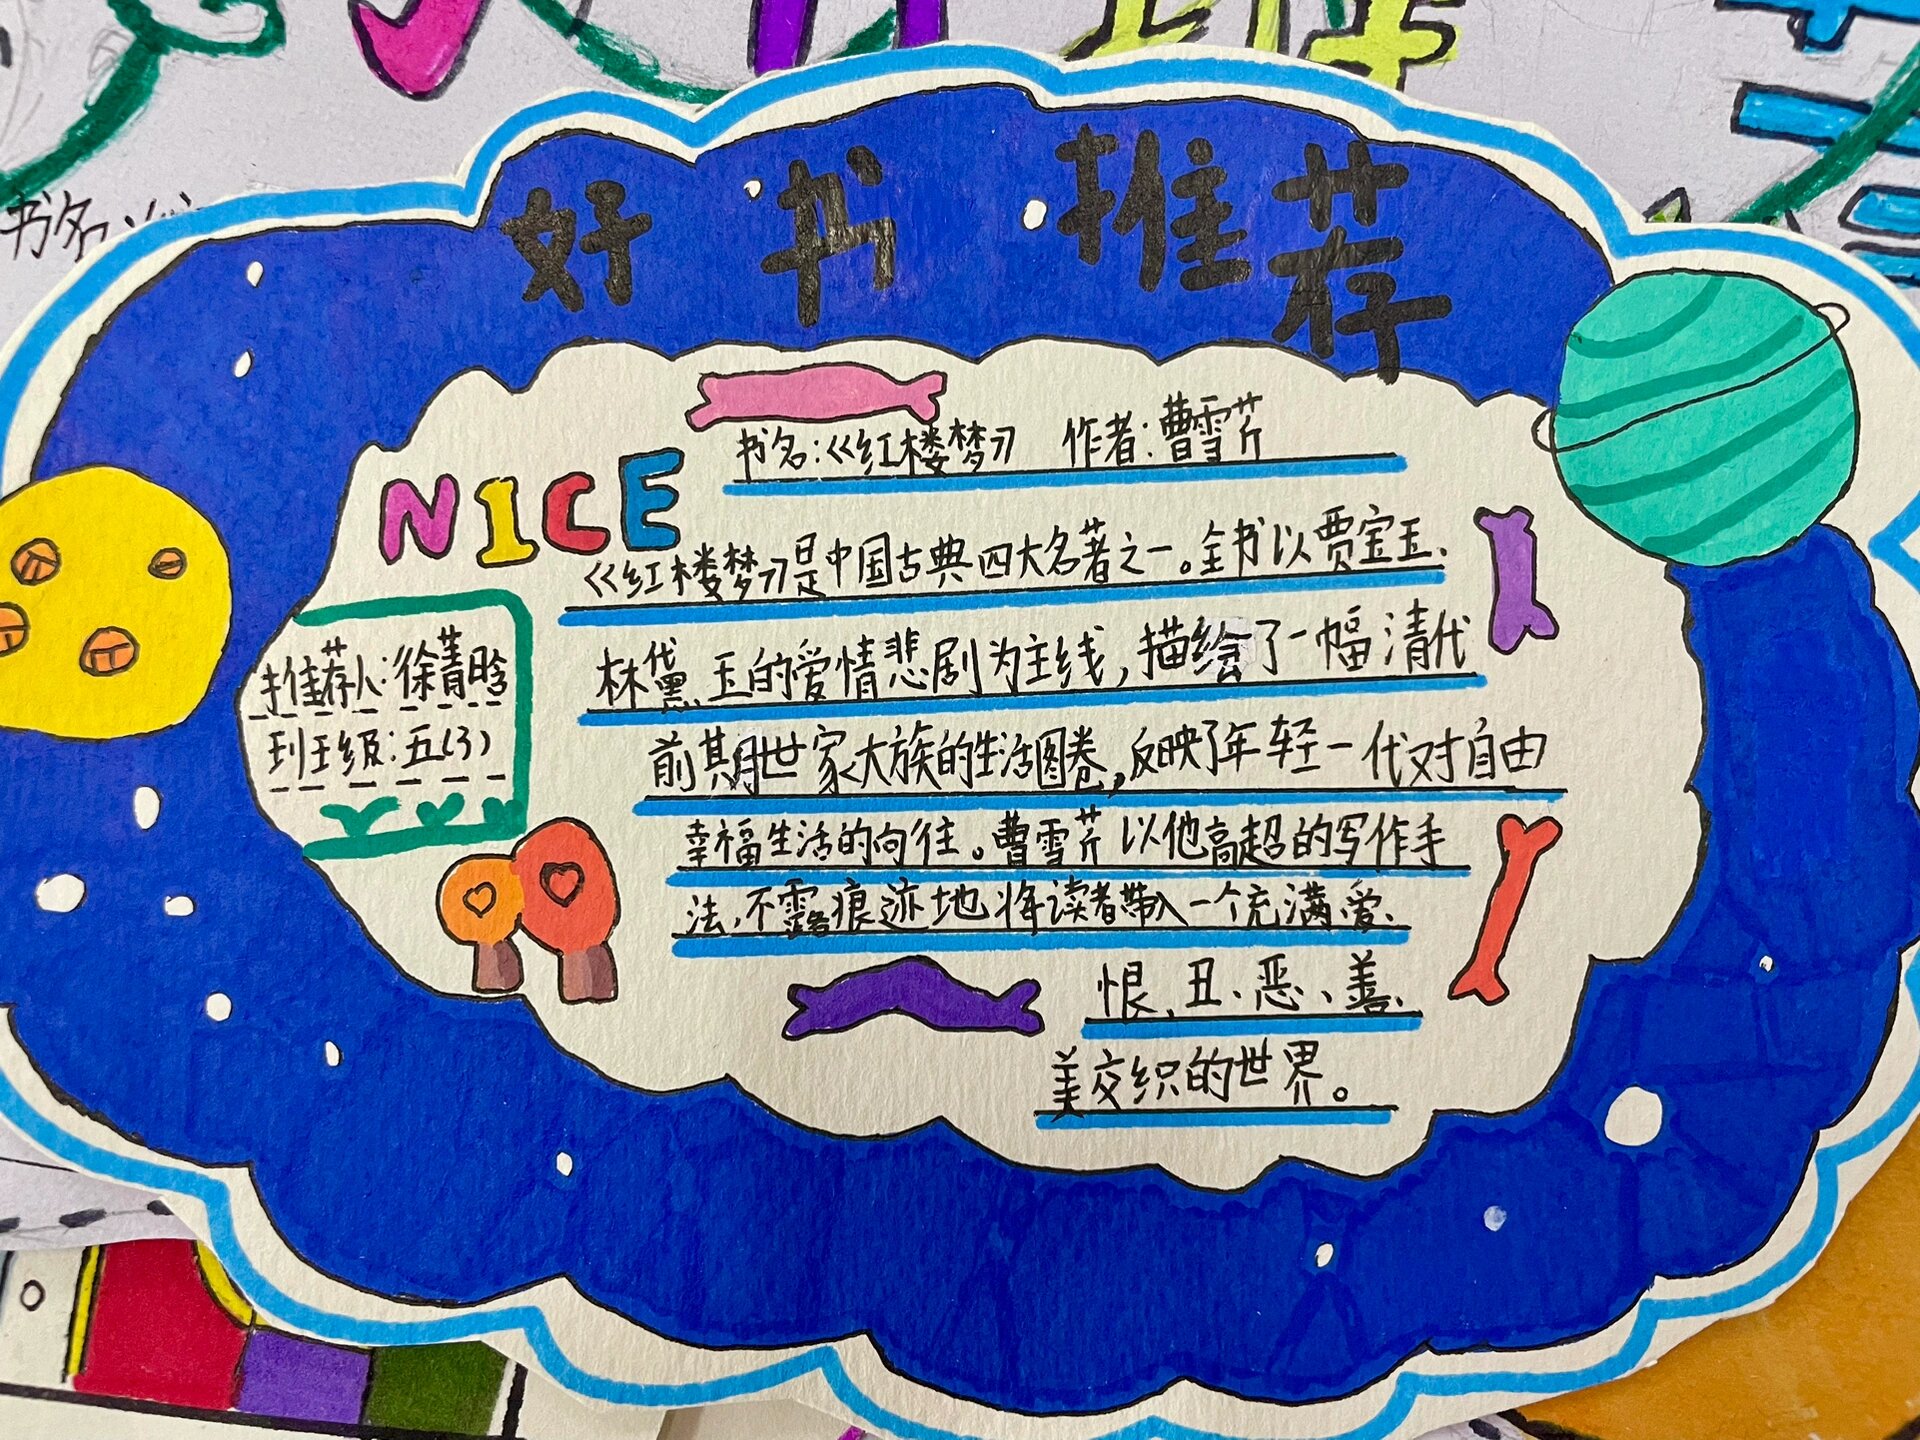 好书推荐
书名:《红楼梦》 作者:曹雪芹
NICE
《红楼梦》是中国古典四大名著之一。全书以贾宝玉、
林黛玉的爱情悲剧为主线,描绘了一幅清代
前期世家大族的生活图卷,反映了年轻一代对自由
幸福生活的向往。曹雪芹以他高超的写作手
法,不露痕迹地将读者带入一个充满爱、
恨、丑、恶、善、
美交织的世界。
推荐人:徐菁晗
班级:五(3)
书名: